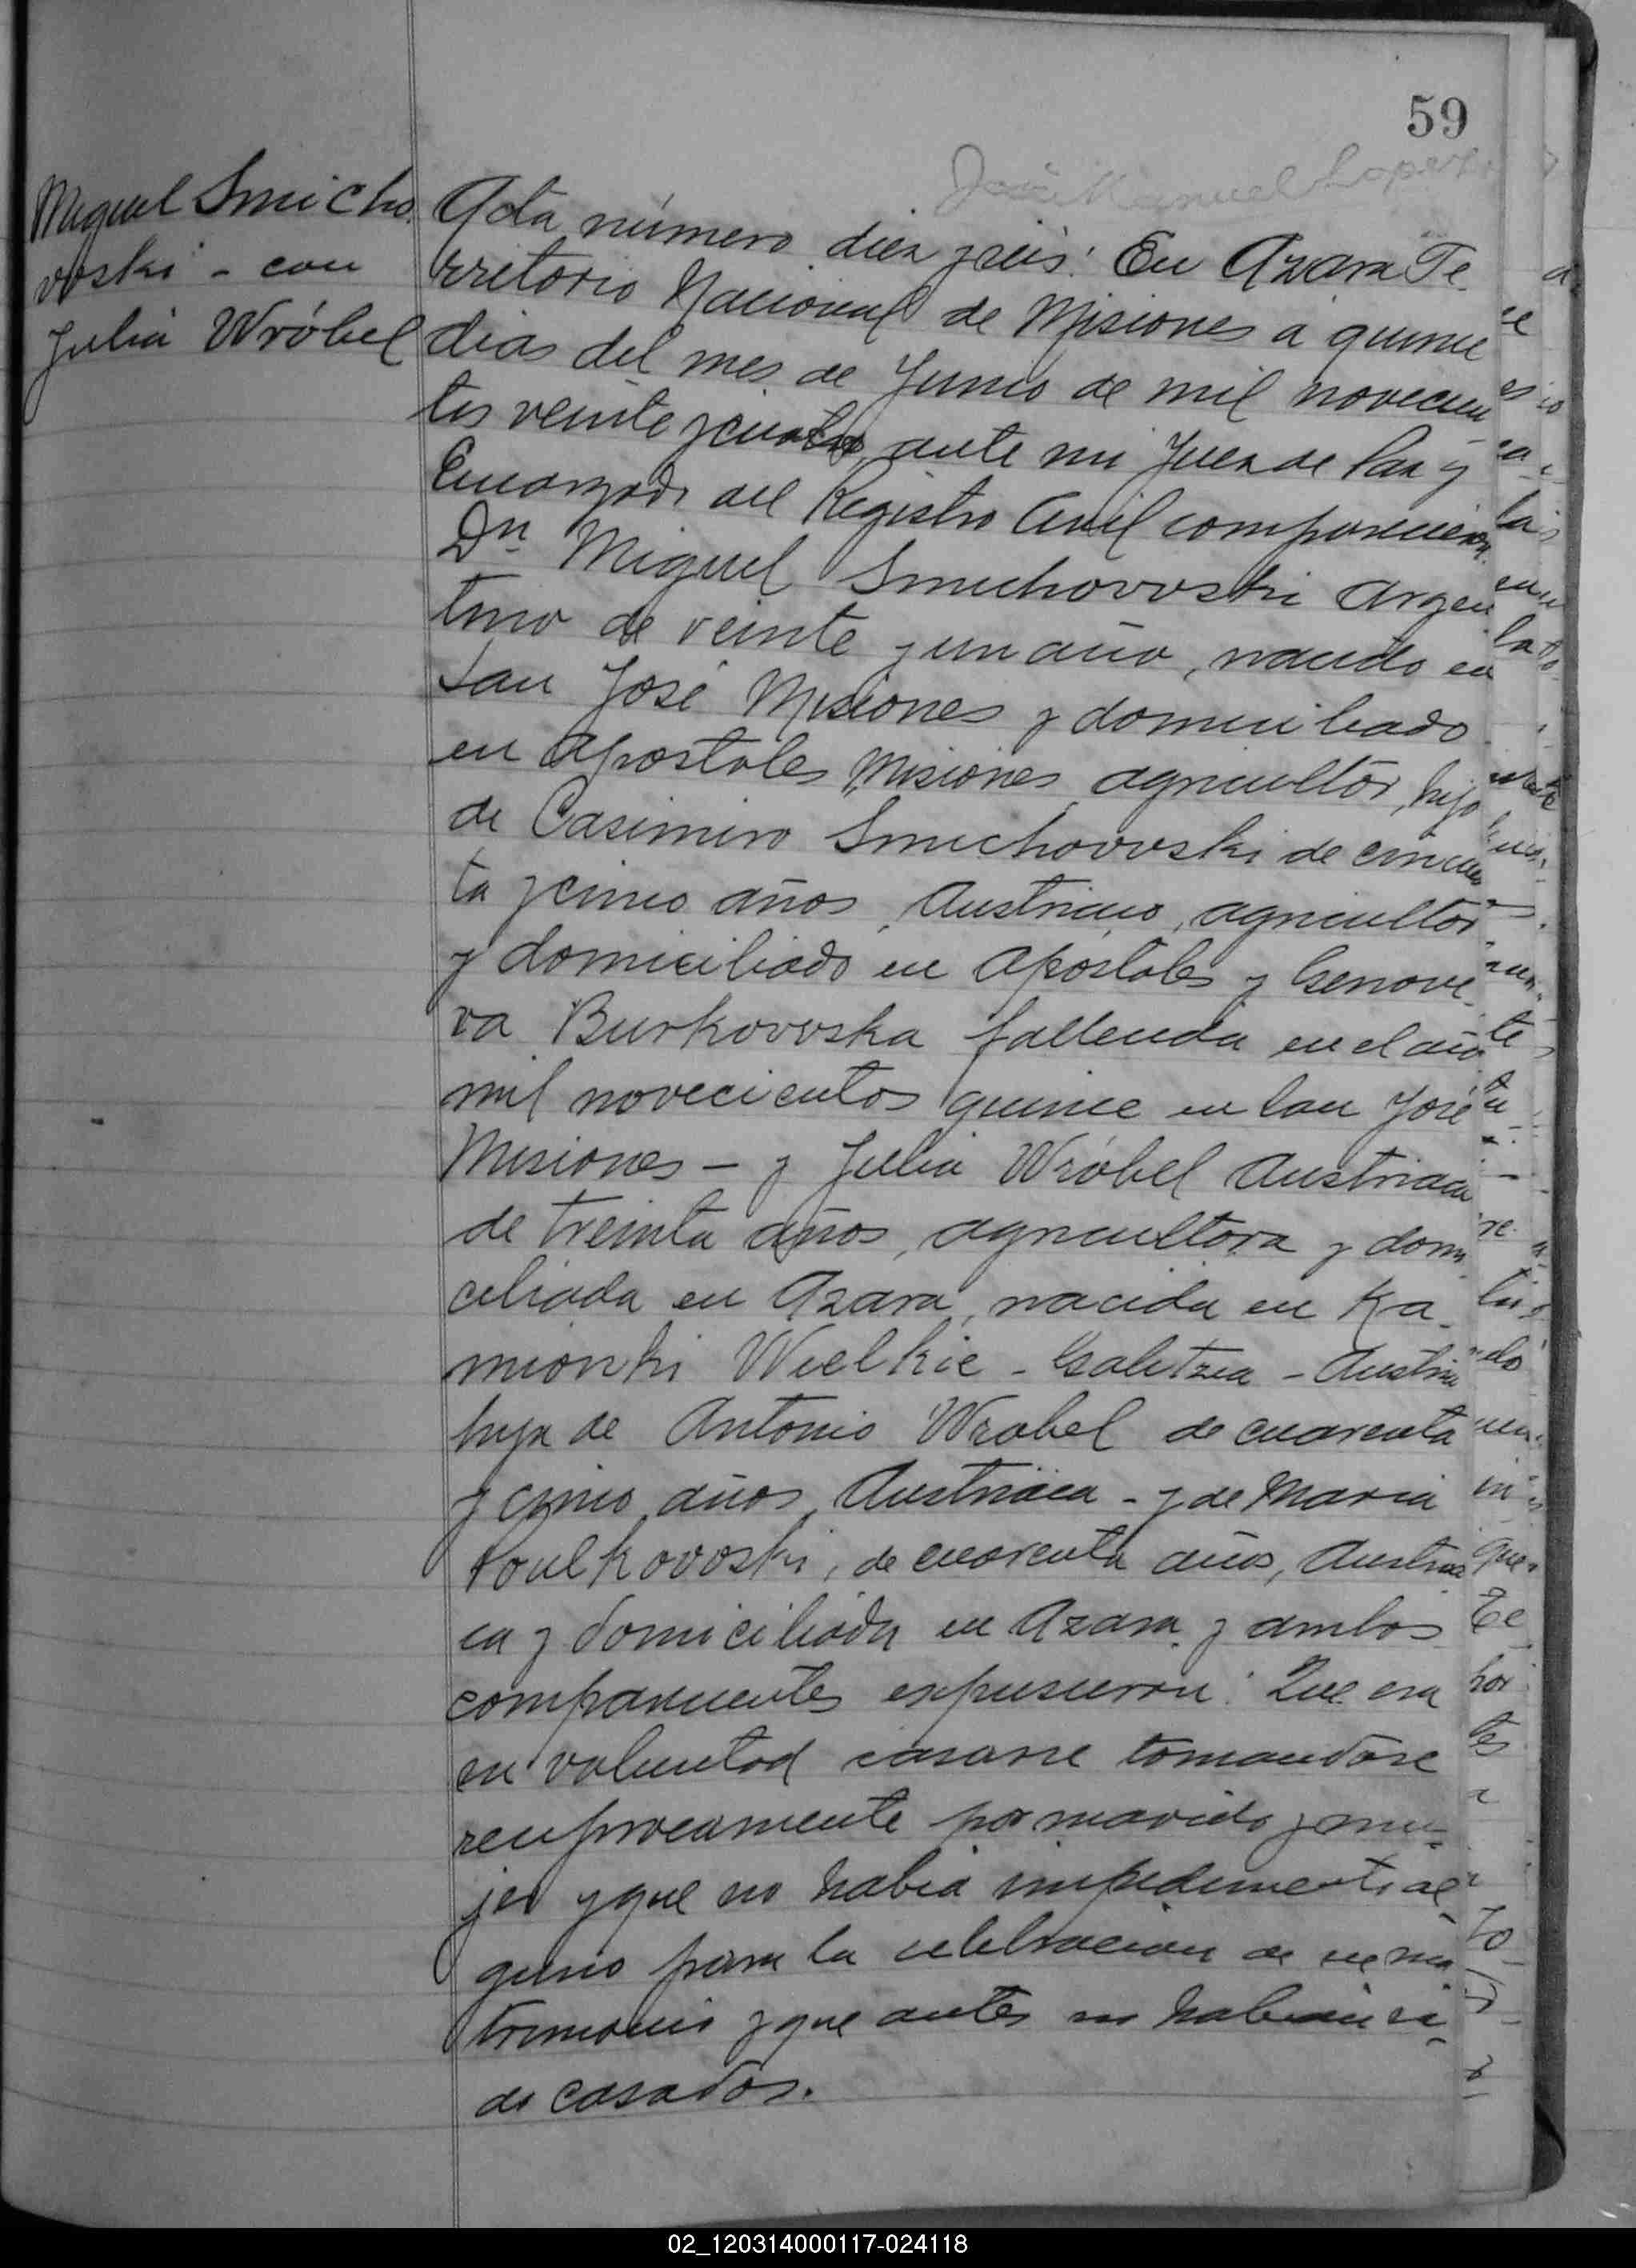 59
José Manuel
Miguel Smicho
voski - con
Julia Wróbel
Acta número diez y seis: En Azara Te
rritorio Nacional de Misiones a quince
dias del mes de Junio de mil novecien
tos veinte y cuatro, ante mi Juez de Paz y
Encargado del Registro Civil comparecieron
Dn Miguel Smichovoski Argen
tino de veinte y un año, nacido en
San José Misiones y domiciliado
en Apostoles Misiones agricultor, hijo
de Casimiro Smichovoski de cincuen
ta y cinco años, Austriaco, agricultor
y domiciliado en Apostoles y Genove
va Burkovoska fallecida en el año
mil novecientos quince en San José
Misiones - y Julia Wróbel Austriaca
de treinta años, agricultora y domi
ciliada en Azara, nacida en Ka
mionki Wielkie - Galitzia - Austria
hija de Antonio Wrobel de cuarenta
y cinco años, Austriaca - y de Maria
de cuarenta años, Austria
ca y domiciliada en Azara y ambos
comparecientes expusieron: Que era
su voluntad casarse tomandose
reciprocamente por marido y mu-
jer y que no habia impedimento al
guno para la celebracion de su ma
trimonio y que antes no habian si-
do casados.
02_120314000117-024118